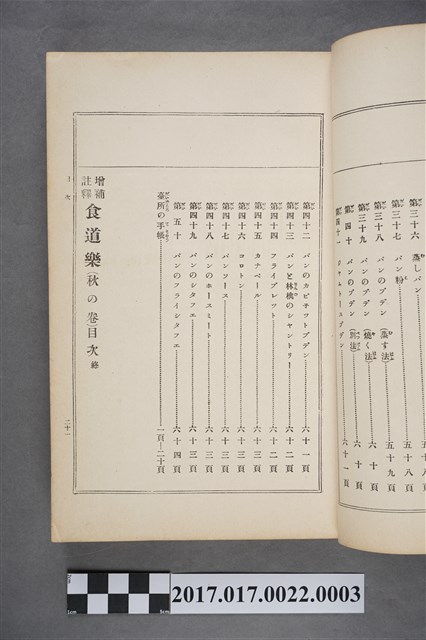 第三十六 蒸しパン 五十八
第三十七 パン粉 五十八頁
第三十八 パンのプデン(蒸す法) 五十九頁
第三十九 パンのプデン(燒く法) 六十頁
第四十 パンのプデン(別法) 六十頁
第四十一 ジャムトースプデン 六十一頁
第四十二 パンのカビチットプデン 六十一頁
第四十三 パンと林檎のシャントリー 六十二頁
第四十四 フライブレット 六十二頁
第四十五 カナペール 六十三頁
第四十六 コロトン 六十三頁
第四十七 パンソース 六十三頁
第四十八 パンのホースミート 六十三頁
第四十九 パンのシタフエ 六十三頁
第五十 パンのフライシタフエ 六十四頁
臺所の手帳 一頁―二十頁
增補註釋 食道樂(秋の卷)目次 終
目次 二十一
2017.017.0022.0003